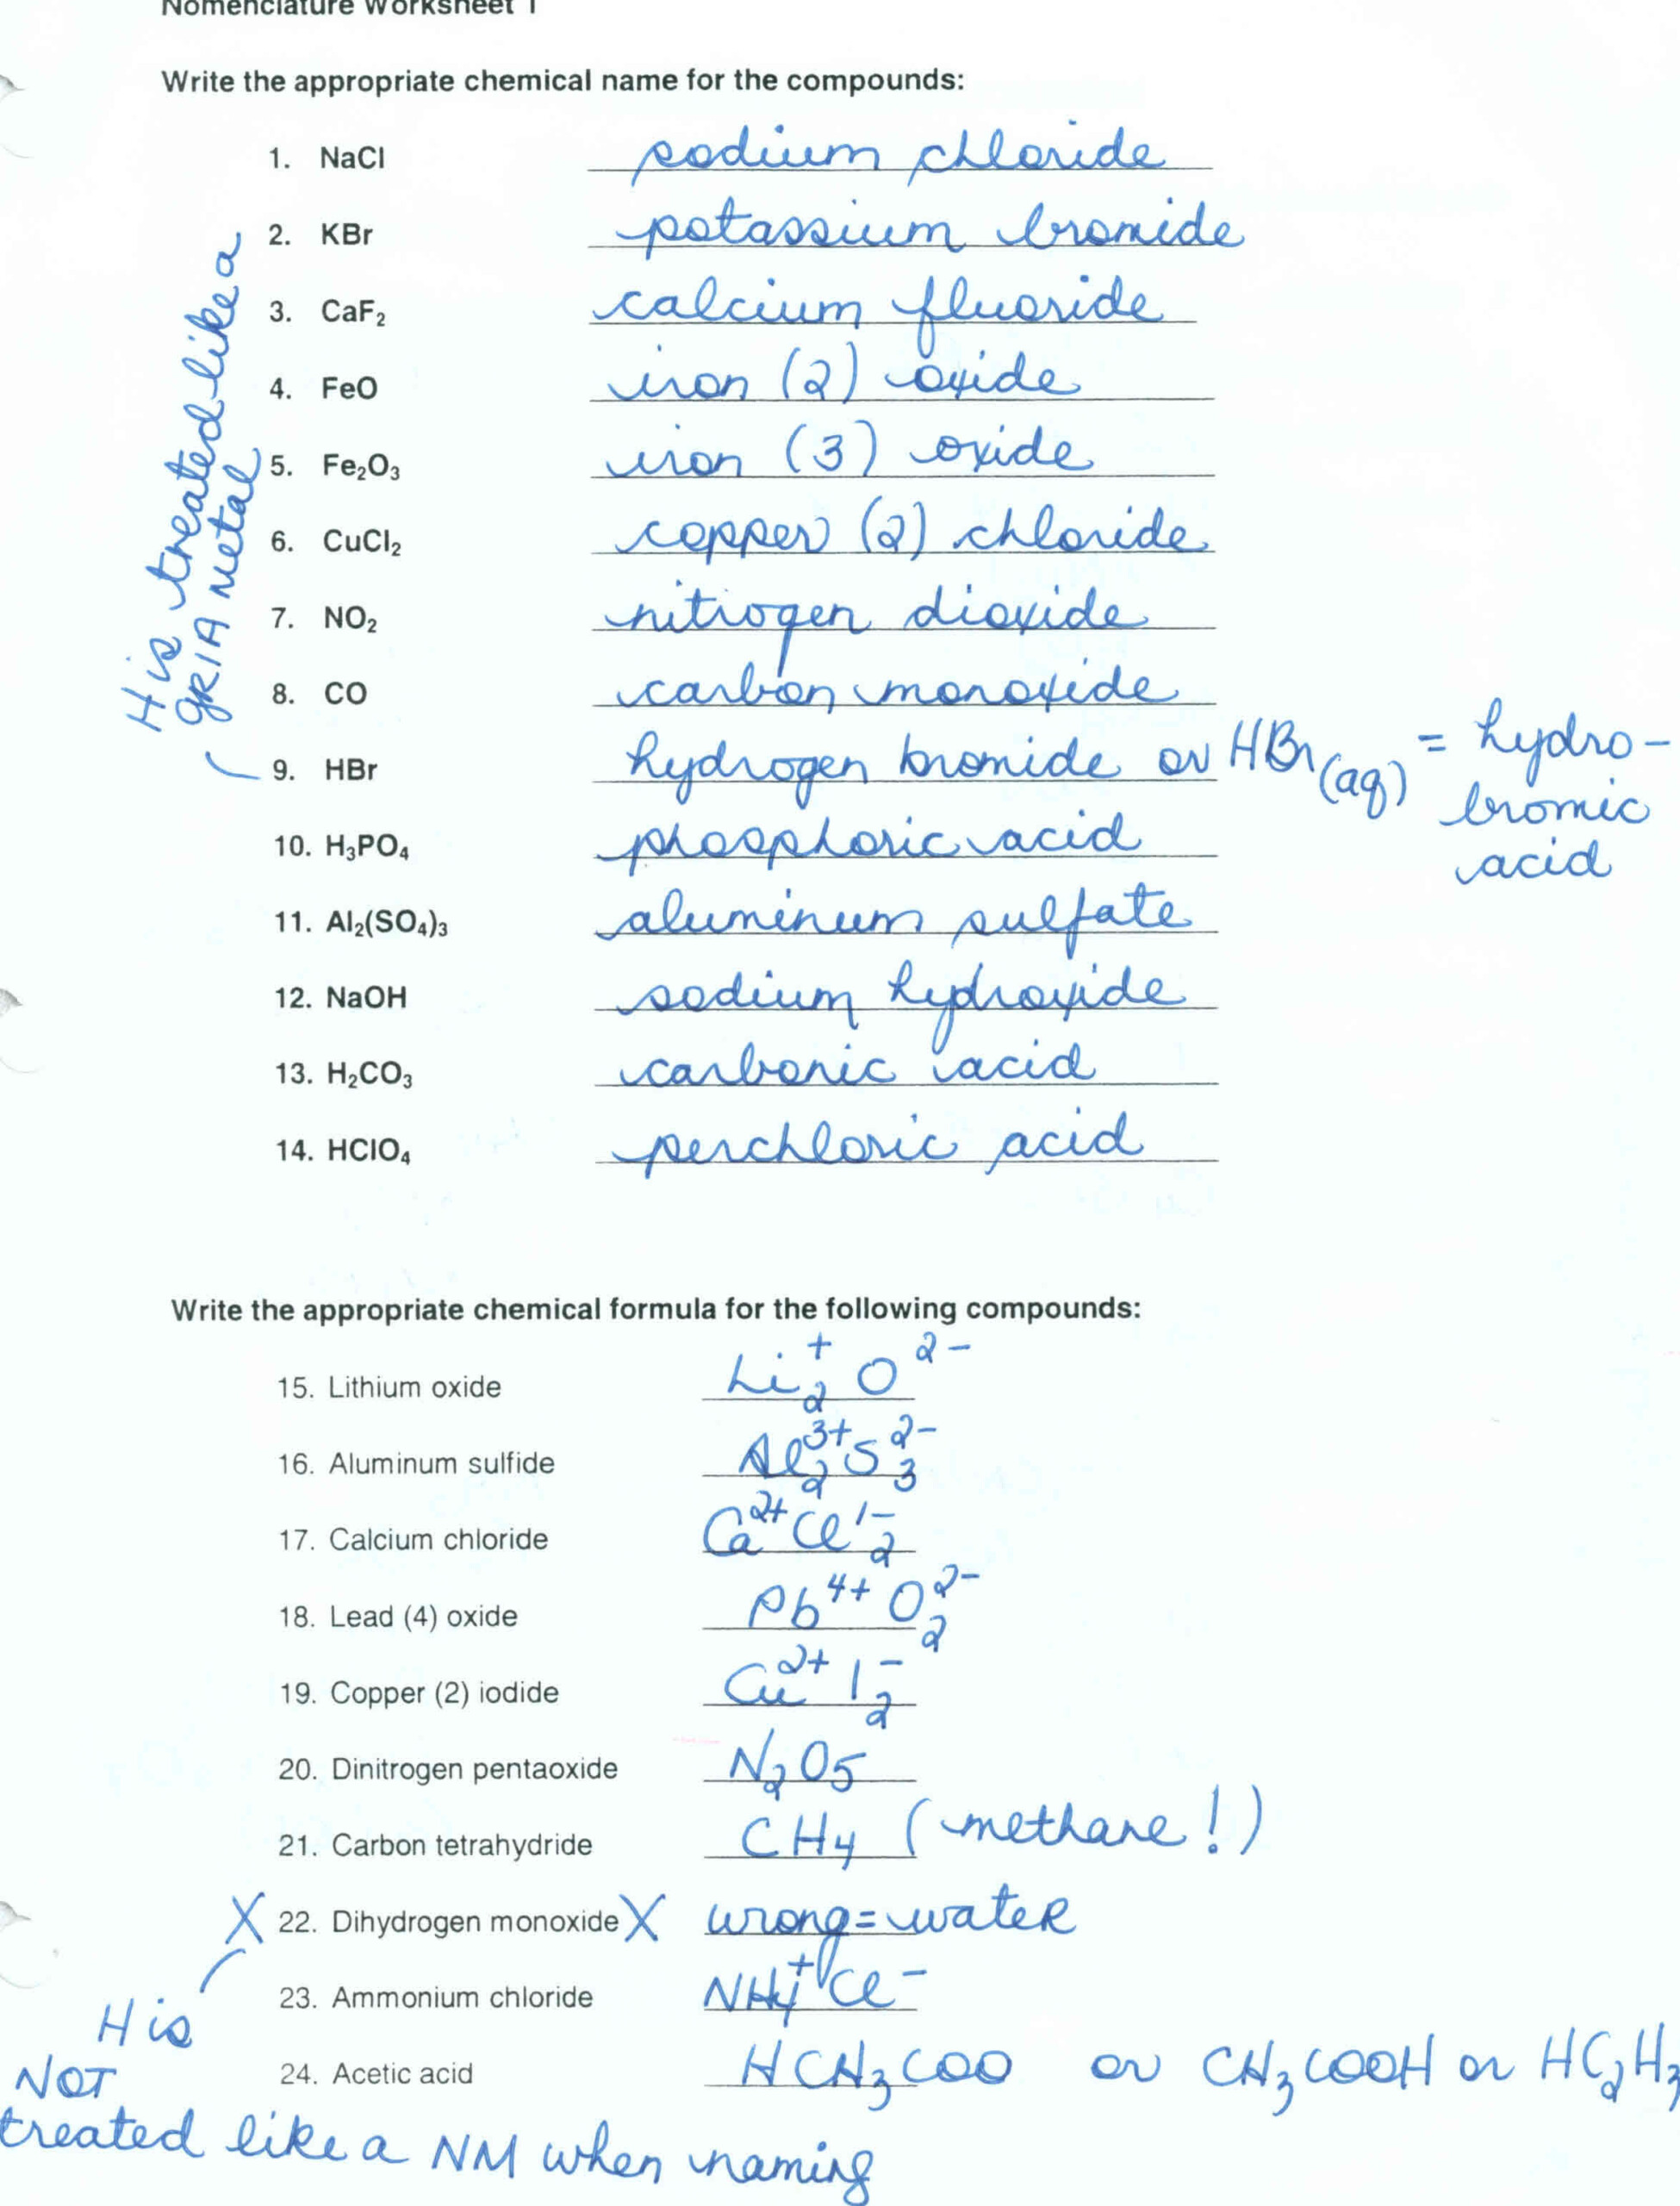 Nomenclature Worksheet 1
Write the appropriate chemical name for the compounds:
1. NaCl sodium chloride
2. KBr potassium bromide
3. CaF₂ calcium fluoride
4. FeO iron (2) oxide
5. Fe₂O₃ iron (3) oxide
6. CuCl₂ copper (2) chloride
7. NO₂ nitrogen dioxide
8. CO carbon monoxide
H is treated like a
gR IA metal
9. HBr hydrogen bromide or HBr(aq) = hydro-
bromic
acid
10. H₃PO₄ phosphoric acid
11. Al₂(SO₄)₃ aluminum sulfate
12. NaOH sodium hydroxide
13. H₂CO₃ carbonic acid
14. HClO₄ perchloric acid
Write the appropriate chemical formula for the following compounds:
15. Lithium oxide Li₂⁺ O²⁻
16. Aluminum sulfide Al₂³⁺ S₃²⁻
17. Calcium chloride Ca²⁺ Cl₂¹⁻
18. Lead (4) oxide Pb⁴⁺ O₂²⁻
19. Copper (2) iodide Cu²⁺ I₂⁻
20. Dinitrogen pentaoxide N₂O5
21. Carbon tetrahydride CH₄ (methane!)
X 22. Dihydrogen monoxide X wrong = water
23. Ammonium chloride NH₄⁺ Cl⁻
24. Acetic acid HCH₃COO or CH₃COOH or HC₂H₃
H is
NOT
treated like a NM when naming